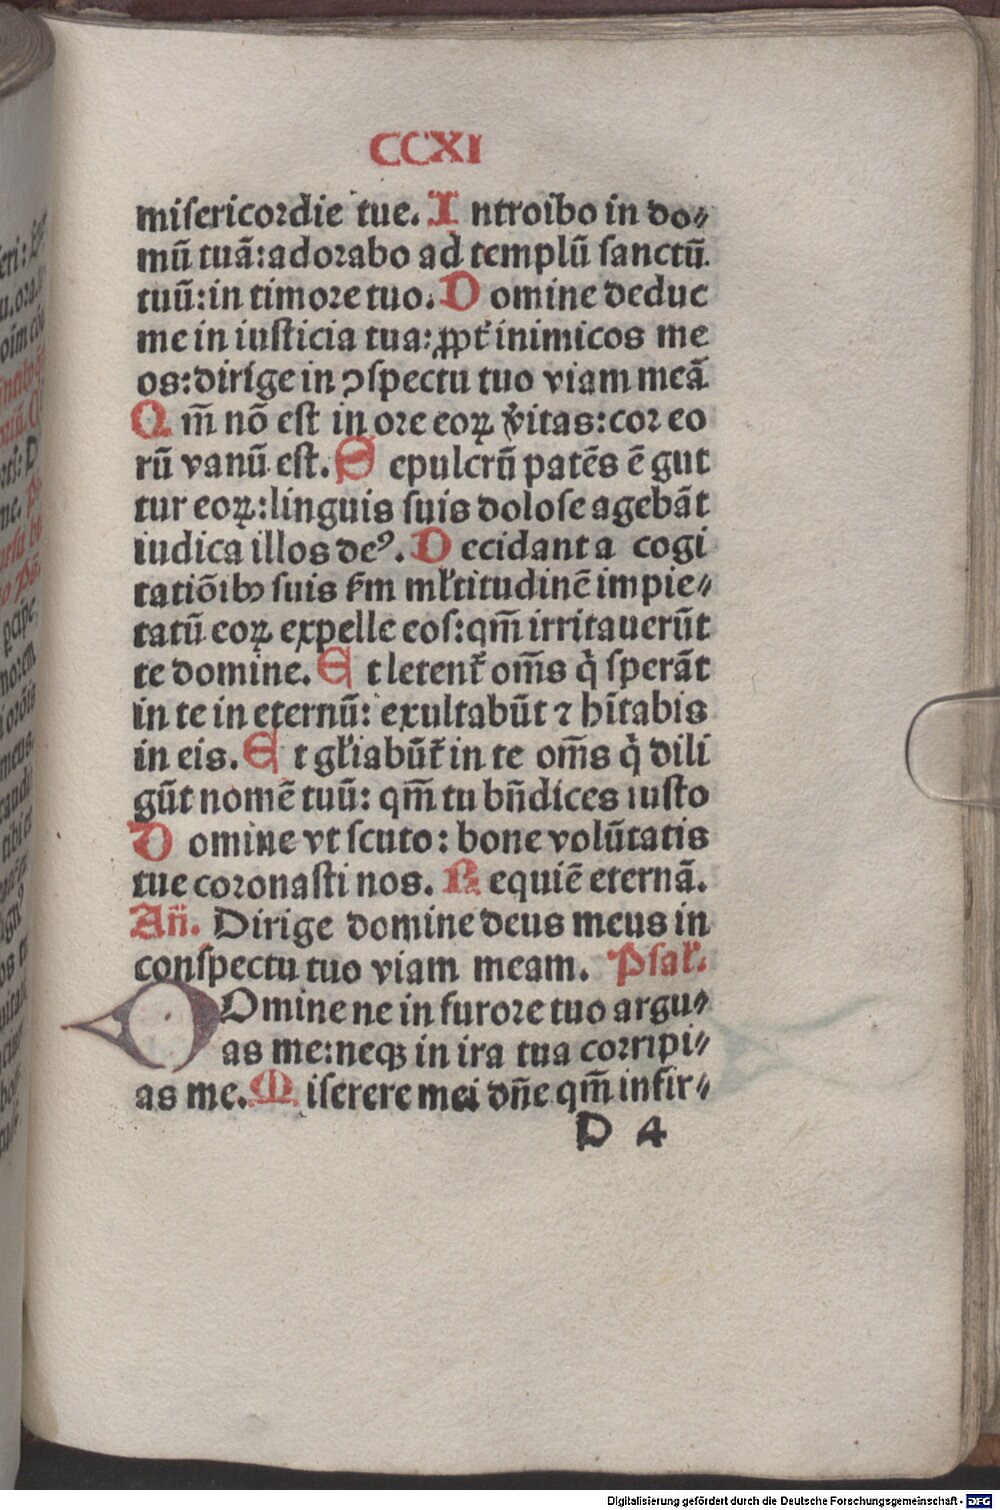 CCXI
misericordie tue. Introibo in do⸗
mū tuā: adorabo ad templū sanctū.
tuū: in timore tuo. Domine deduc
me in iusticia tua: ꝓpt᷑ inimicos me
os: dirige in ꝯspectu tuo viam meā
Qm̄ nō est in ore eoꝝ v̓itas: cor eo
rū vanū est. Sepulcrū patēs ē gut
tur eoꝝ: linguis suis dolose agebāt
iudica illos deꝰ. Decidant a cogi
tatiōibꝰ suis ẜm ml̓titudinē impie⸗
tatū eoꝝ expelle eos: qm̄ irritauerūt
te domine. Et letent᷑ om̄s q̇ sperāt
in te in eternū: exultabūt ⁊ hītabis
in eis. Et gl̓iabūt᷑ in te om̄s q̇ dili
gūt nomē tuū: qm̄ tu bn̄dices iusto
Domine vt scuto: bone volūtatis
tue coronasti nos. Requiē eternā.
Añ. Dirige domine deus meus in
conspectu tuo viam meam. Psal̓.
DOmine ne in furore tuo argu⸗
as me: neqꝫ in ira tua corripi⸗
as me. Miserere mei dn̄e qm̄ infir⸗
D 4
Digitalisierung gefördert durch die Deutsche Forschungsgemeinschaft - DFG